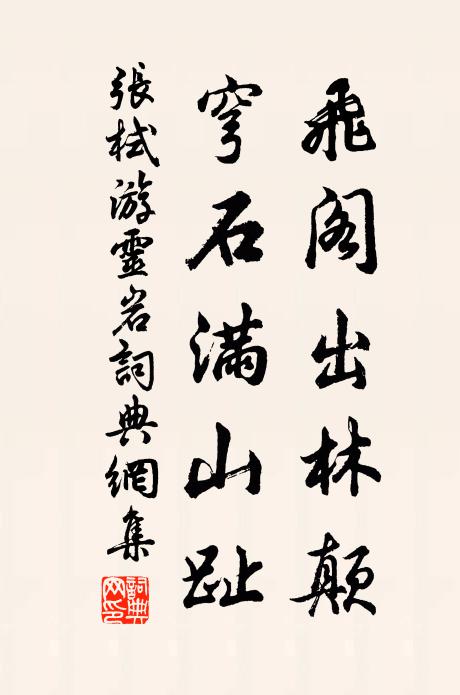 飛閣出林顛
穹石滿山趾
張栻游靈岩詞典網集
詞典網印